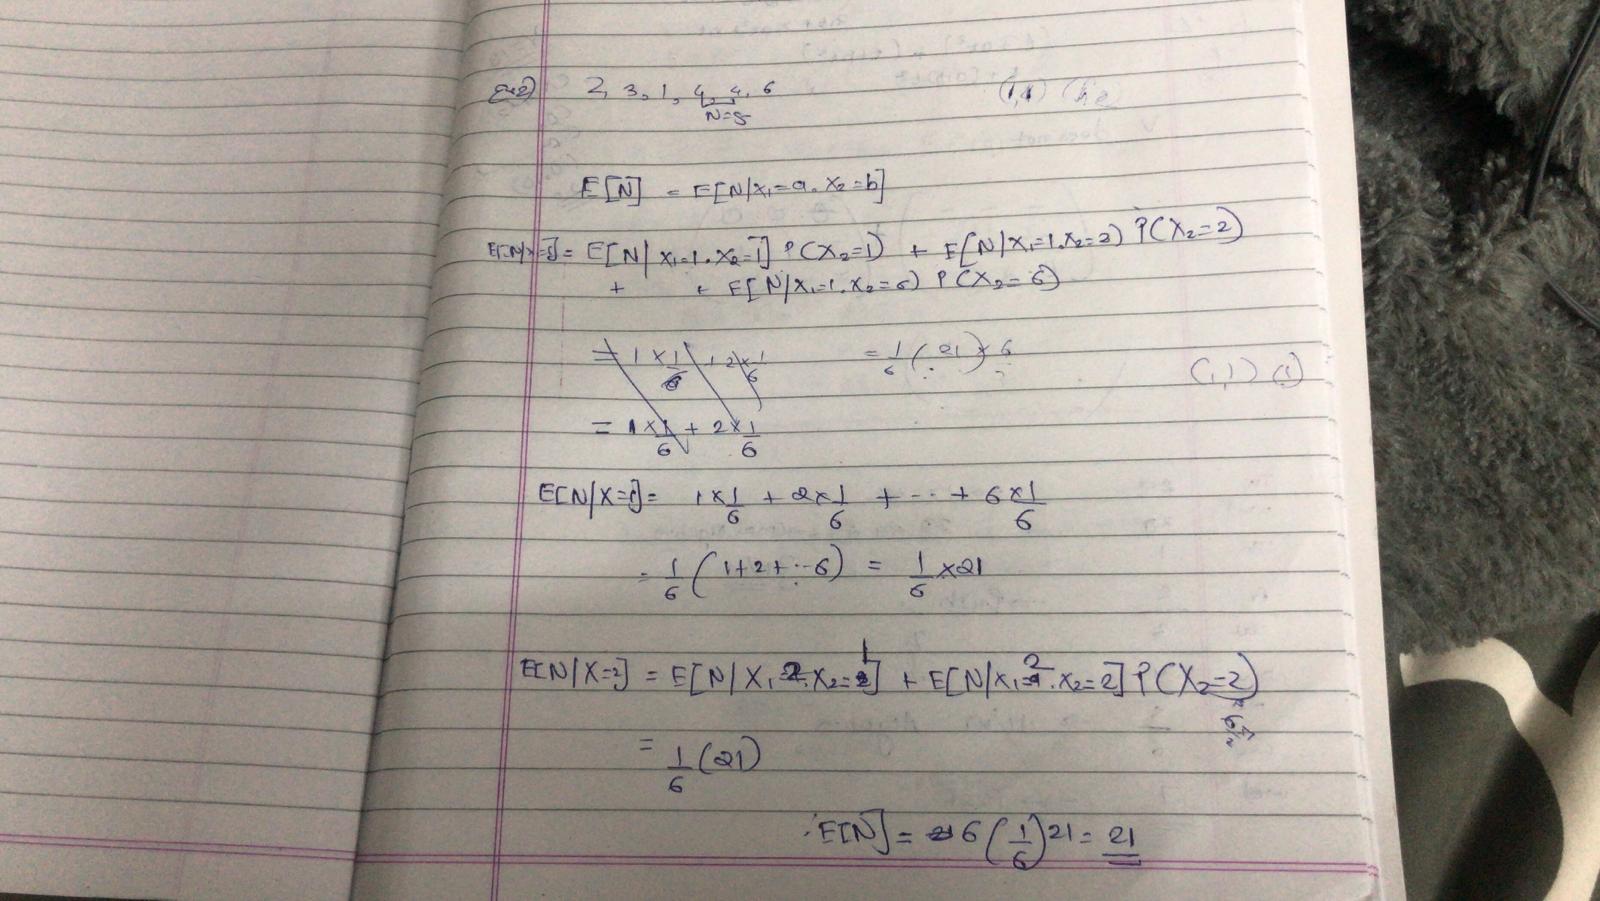 Ex2) 2, 3, 1, 4, 4, 6
N=5
E[N] = E[N/X₁=a, X₂=b]
E[N/X=1] = E[N/X₁=1, X₂=1] P(X₂=1) + E[N/X₁=1, X₂=2) P(X₂=2)
+ + E[N/X₁=1, X₂=6) P(X₂=6)
= 1 × 1/6 + 2 × 1/6 = 1/6 (21) × 6
(1,1) (1)
= 1 × 1/6 + 2 × 1/6
E[N/X=1] = 1 × 1/6 + 2 × 1/6 + ... + 6 × 1/6
= 1/6 (1+2+...6) = 1/6 × 21
E[N/X=2] = E[N/X₁ 2, X₂=1] + E[N/X₁=2, X₂=2] P(X₂=2)
= 1/6 (21)
∴ E[N] = 6 (1/6) 21 = 21